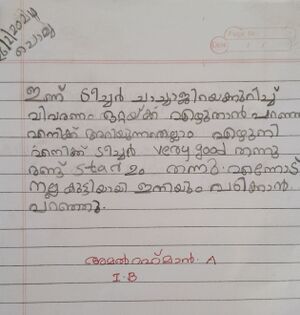 ചൊവ്വ
ഇന്ന് ടീച്ചർ ചാച്ചാജിയെക്കുറിച്ച്
വിവരണം ഒറ്റയ്ക്ക് എഴുതാൻ പറഞ്ഞു
എനിക്ക് അറിയുന്നതെല്ലാം എഴുതി
എനിക്ക് ടീച്ചർ very good തന്നു
രണ്ട് star ഉം തന്നു. എന്നോട്
നല്ല കുട്ടിയായി ഇനിയും പഠിക്കാൻ
പറഞ്ഞു.
അമൽ റഹ്മാൻ. A
I. B